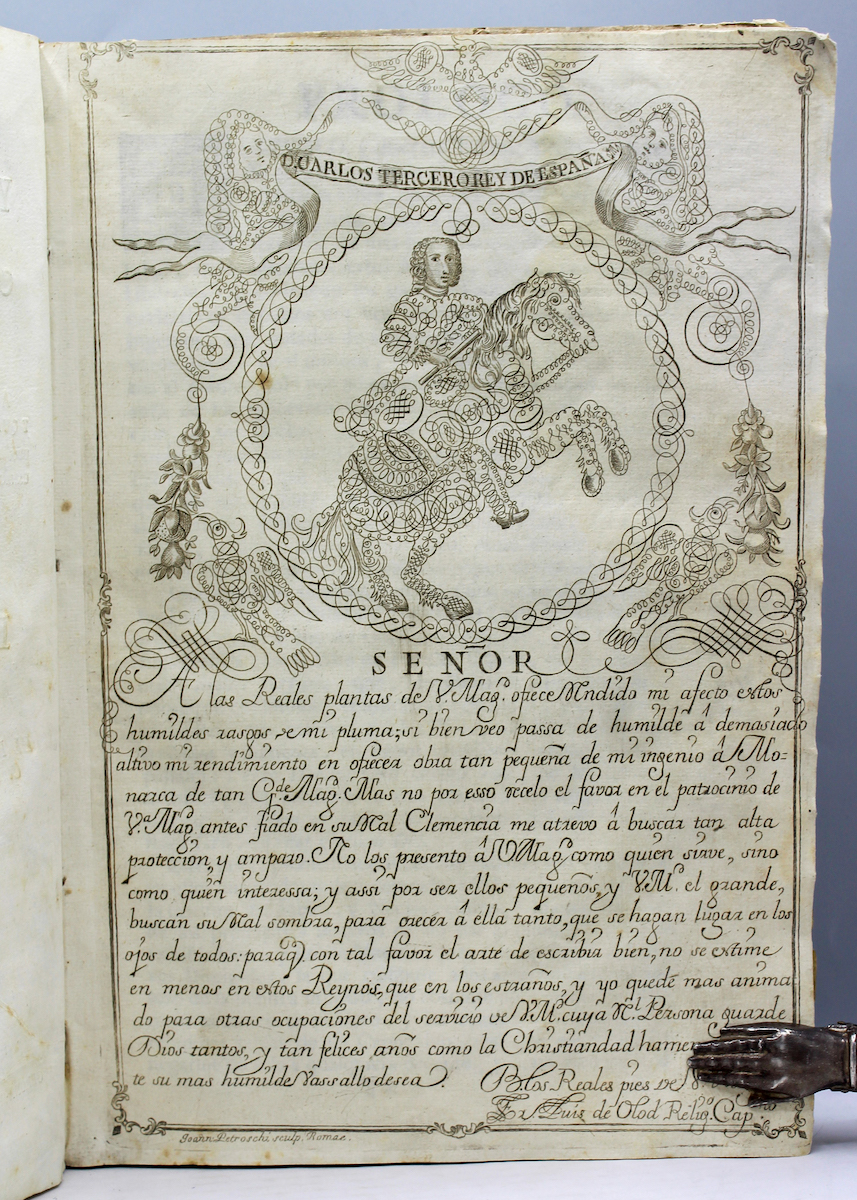 D. CARLOS TERCERO REY DE ESPAÑA
SEÑOR
A las Reales plantas de V. Mag. ofrece Rndido mi afecto estos
humildes rasgos de mi pluma; si bien veo passa de humilde â demasiado
altivo mi rendimiento en ofrecer obra tan pequeña de mi ingenio â Mo-
narca de tan Gde. Mag. Mas no por esso recelo el favor en el patrocinio de
V.ª Mag. antes fiado en su Ral Clemencia me atrevo â buscar tan alta
proteccion, y amparo. No los presento â V Mag. como quien sirve, sino
como quien interessa; y assi por ser ellos pequeños, y V. M. el grande,
buscan su Ral sombra, para crecer â ella tanto, que se hagan lugar en los
ojos de todos: paraq con tal favor el arte de escribir bien, no se estime
en menos en estos Reynos, que en los estraños, y yo quede mas anima
do para otras ocupaciones del servicio de V. M. cuya Rl. Persona guarde
Dios tantos, y tan felices años como la Christiandad ha
te su mas humilde Vassallo desea.
B. los Reales pies de V.
Fr. Luis de Olod Relig. Cap.no
Joann. Petroschi sculp. Romae.